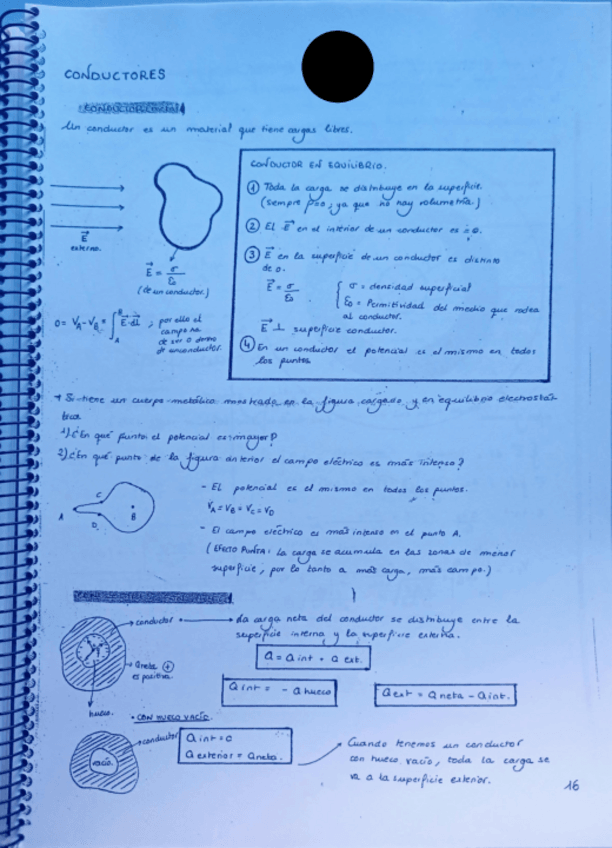 CONDUCTORES
Un conductor es un material que tiene cargas libres.
E
externo.
E = σ/ε0
(de un conductor.)
0 = VA - VB = ∫A B E·dl ; por ello el
campo ha
de ser 0 dentro
de un conductor.
CONDUCTOR EN EQUILIBRIO.
① Toda la carga se distribuye en la superficie.
(siempre ρ=0, ya que no hay volumetría.)
② El E en el interior de un conductor es = 0.
③ E en la superficie de un conductor es distinto
de 0.
E = σ/ε0 { σ = densidad superficial
ε0 = Permitividad del medio que rodea
al conductor.
E ⊥ superficie conductor.
④ En un conductor el potencial es el mismo en todos
los puntos
Si tiene un cuerpo metálico mostrada en la figura, cargado y en equilibrio electrostá-
tico
1) ¿En qué punto el potencial es mayor?
2) ¿En qué punto de la figura anterior el campo eléctrico es más intenso?
A
C
D
B
- El potencial es el mismo en todos los puntos.
VA = VB = VC = VD
- El campo eléctrico es más intenso en el punto A.
(EFECTO PUNTA: la carga se acumula en las zonas de menor
superficie, por lo tanto a más carga, más campo.)
conductor
La carga neta del conductor se distribuye entre la
superficie interna y la superficie externa.
Qneta ⊕
es positiva.
hueco.
Q = Q int + Q ext.
Q int = - Q hueco
Q ext = Q neta - Q int.
• CON HUECO VACÍO.
conductor
vacío.
Q int = 0
Q exterior = Q neta.
Cuando tenemos un conductor
con hueco vacío, toda la carga se
va a la superficie exterior.
16